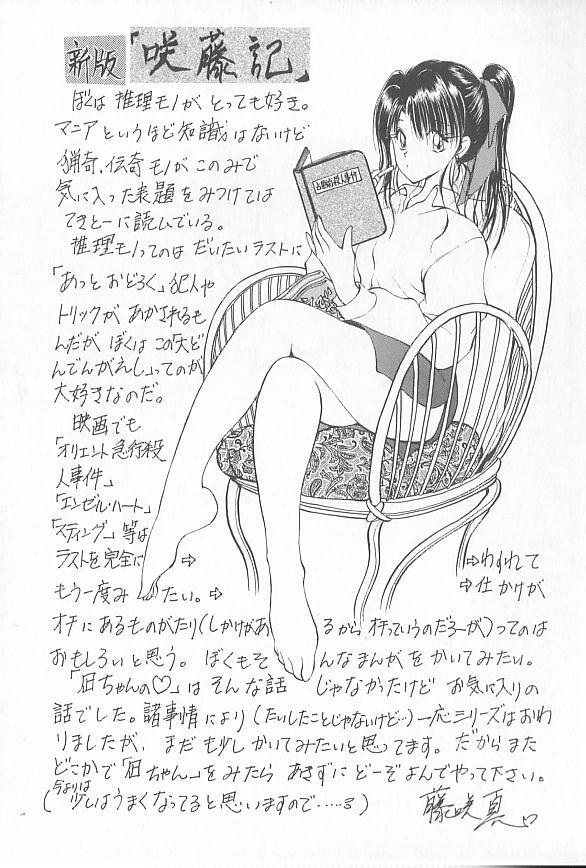 新版「咲藤記」
ぼくは推理モノがとっても好き。
マニアというほど知識はないけど
猟奇、伝奇モノがこのみで
気に入った表題をみつけては
てきとーに読んでいる。
推理モノってのはだいたいラストに
「あっとおどろく」犯人や
トリックがあかされるも
んだが、ぼくはこの「大ど
んでんがえし」ってのが
大好きなのだ。
映画でも
「オリエント急行殺
人事件」
「エンゼル・ハート」
「スティング」等は
ラストを完全に⇨
⇨わすれて
もう一度みたい。⇨
⇨仕かけが
オチにあるものがたり(しかけがあるからオチっていうのだろーが)ってのは
おもしろいと思う。ぼくもそんなまんがをかいてみたい。
ちゃんの♡」はそんな話じゃなかったけどお気に入りの
話でした。諸事情により(たいしたことじゃないけど…)一応シリーズはおわ
りましたが、まだも少しかいてみたいと思ってます。だからまた
どこかで「ちゃん」をみたらあきずにどーぞよんでやって下さい。
(今よりは少しはうまくなってると思いますので……)
藤咲真
殺人事件